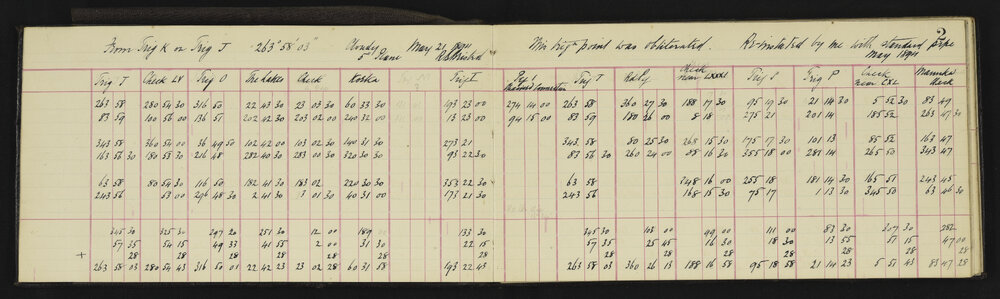 2
From Trig K on Trig J 263° 58' 03" Cloudy May 21 1894 This trig point was obliterated. Re-instated by me with standard pipe
May 1894
Trig J Check LV Trig O The Lakes Check Trig T Trig J Check near LXXXI Trig P Check near CXL Manuka Check
263 58 280 54 30 316 50 22 43 30 23 03 30 60 33 30 193 23 00 274 14 00 263 58 360 27 30 188 17 30 95 19 30 21 14 30 5 52 30 83 47
83 59 100 56 00 136 51 202 42 30 203 02 00 240 32 00 13 23 00 94 15 00 83 59 180 26 00 8 18 275 21 201 14 185 52 263 47 30
343 58 360 54 00 36 49 50 102 42 00 103 02 30 140 31 30 273 21 343 58 80 25 30 268 15 30 175 17 30 101 13 85 52 163 47
163 56 30 180 53 30 216 48 282 40 30 283 00 30 320 30 30 93 22 30 83 56 30 260 24 00 88 16 30 355 18 00 281 14 265 50 343 47
63 58 80 54 30 116 50 182 41 30 183 02 220 30 30 353 22 30 63 58 248 16 00 255 18 181 14 30 165 51 243 45
243 56 53 00 296 48 30 2 41 30 3 01 30 40 31 00 173 21 30 243 56 168 15 30 75 17 1 13 30 345 50 63 46 30
345 30 325 30 297 20 251 30 12 00 189 133 30 345 30 103 00 99 00 111 00 83 30 317 30 282
57 35 54 15 49 33 41 55 2 00 31 30 22 15 57 35 25 45 16 30 18 30 13 55 57 15 47 00
+ 28 28 28 28 28 28 28 28 28 28 28 28 28 28
263 58 03 280 54 43 316 50 01 22 42 23 23 02 28 60 31 58 193 22 43 263 58 03 360 26 13 188 16 58 95 18 58 21 14 23 5 51 43 83 47 28